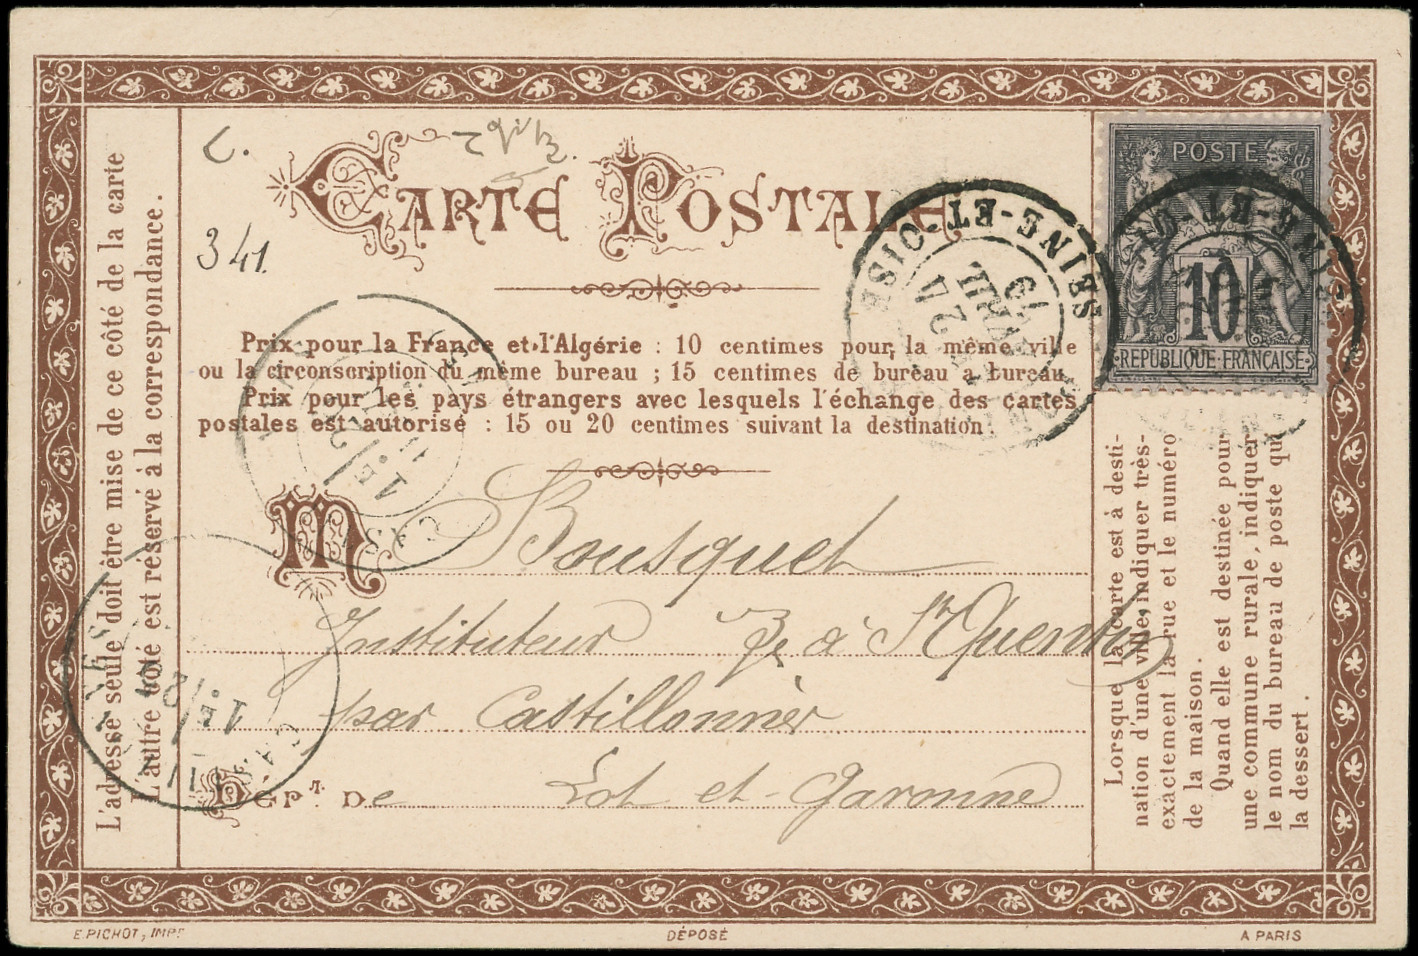 L'adresse seule doit être mise de ce côté de la carte
L'autre côté est réservé à la correspondance.
C.
341.
CARTE POSTALE
Prix pour la France et l'Algérie : 10 centimes pour la même ville
ou la circonscription du même bureau ; 15 centimes de bureau à bureau
Prix pour les pays étrangers avec lesquels l'échange des cartes
postales est autorisé : 15 ou 20 centimes suivant la destination.
M Bousquet
Instituteur à St Quentin
par Castillonnès
DÉPT. DE Lot et Garonne
POSTE
10
RÉPUBLIQUE FRANÇAISE
SEINE-ET-OISE
24
AVRIL
79
SEINE-ET-OI
1E/
1E/
Lorsque la carte est à desti-
nation d'une ville, indiquer très-
exactement la rue et le numéro
de la maison.
Quand elle est destinée pour
une commune rurale, indiquer
le nom du bureau de poste qui
la dessert.
E. PICHOT, IMPR
DÉPOSÉ
A PARIS